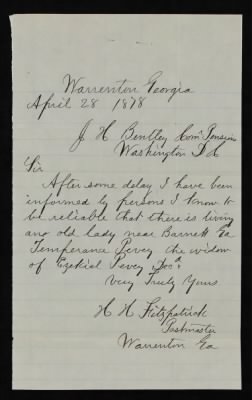 Warrenton Georgia
April 28 1878
J. H. Bentley Com. Pension
Washington D C
Sir
After some delay I have been
informed by persons I know to
be reliable that there is living
an old lady near Barnett Ga
Temperance Pevey the widow
of Ezekial Pevey Decd.
Very Truly Yours
H H Fitzpatrick
Postmaster
Warrenton Ga